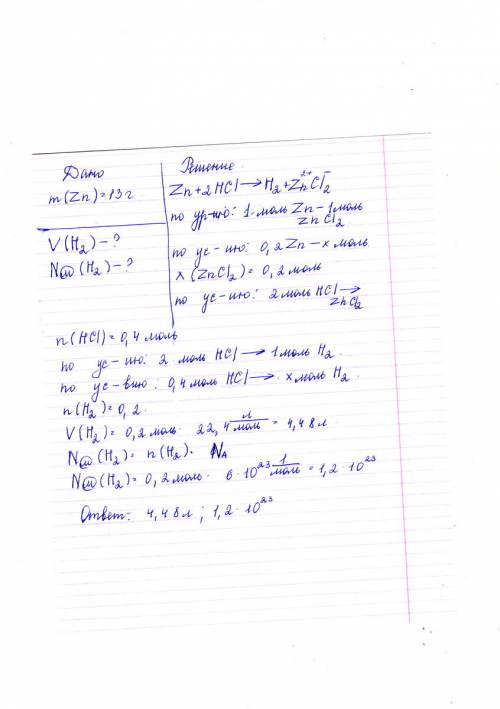 Дано
m(Zn)=13г
V(H₂)-?
N(H₂)-?
Решение.
Zn+2HCl→H₂+Zn²⁺Cl₂⁻
по ур-ию: 1 моль Zn-1 моль
ZnCl₂
по ус-ию: 0,2 Zn-x моль
x(ZnCl₂)=0,2 моль
по ус-ию: 2 моль HCl→
ZnCl₂
n(HCl)=0,4 моль
по ус-ию: 2 моль HCl→1 моль H₂.
по ус-вию: 0,4 моль HCl→x моль H₂.
n(H₂)=0,2.
V(H₂)=0,2 моль·22,4 л/моль=4,48 л.
N(H₂)=n(H₂)·NA
N(H₂)=0,2 моль·6·10²³ 1/моль=1,2·10²³
Ответ: 4,48 л; 1,2·10²³